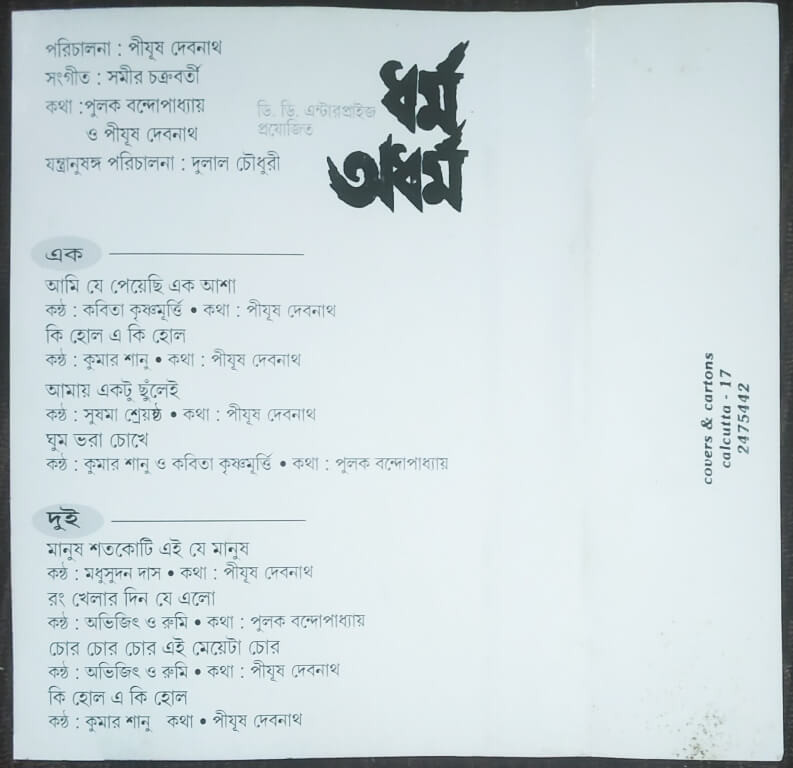 পরিচালনা : পীযূষ দেবনাথ
সংগীত : সমীর চক্রবর্তী
কথা :পুলক বন্দোপাধ্যায়
ও পীযূষ দেবনাথ
যন্ত্রানুষঙ্গ পরিচালনা : দুলাল চৌধুরী
ডি. ডি. এন্টারপ্রাইজ
প্রযোজিত
ধর্ম
অধর্ম
এক
আমি যে পেয়েছি এক আশা
কণ্ঠ : কবিতা কৃষ্ণমূর্ত্তি • কথা : পীযূষ দেবনাথ
কি হোল এ কি হোল
কণ্ঠ : কুমার শানু • কথা : পীযূষ দেবনাথ
আমায় একটু ছুঁলেই
কণ্ঠ : সুষমা শ্রেয়ষ্ঠ • কথা : পীযূষ দেবনাথ
ঘুম ভরা চোখে
কণ্ঠ : কুমার শানু ও কবিতা কৃষ্ণমূর্ত্তি • কথা : পুলক বন্দোপাধ্যায়
দুই
মানুষ শতকোটি এই যে মানুষ
কণ্ঠ : মধুসুদন দাস • কথা : পীযূষ দেবনাথ
রং খেলার দিন যে এলো
কণ্ঠ : অভিজিৎ ও রুমি • কথা : পুলক বন্দোপাধ্যায়
চোর চোর চোর এই মেয়েটা চোর
কণ্ঠ : অভিজিৎ ও রুমি • কথা : পীযূষ দেবনাথ
কি হোল এ কি হোল
কণ্ঠ : কুমার শানু কথা • পীযূষ দেবনাথ
covers & cartons
calcutta - 17
2475442